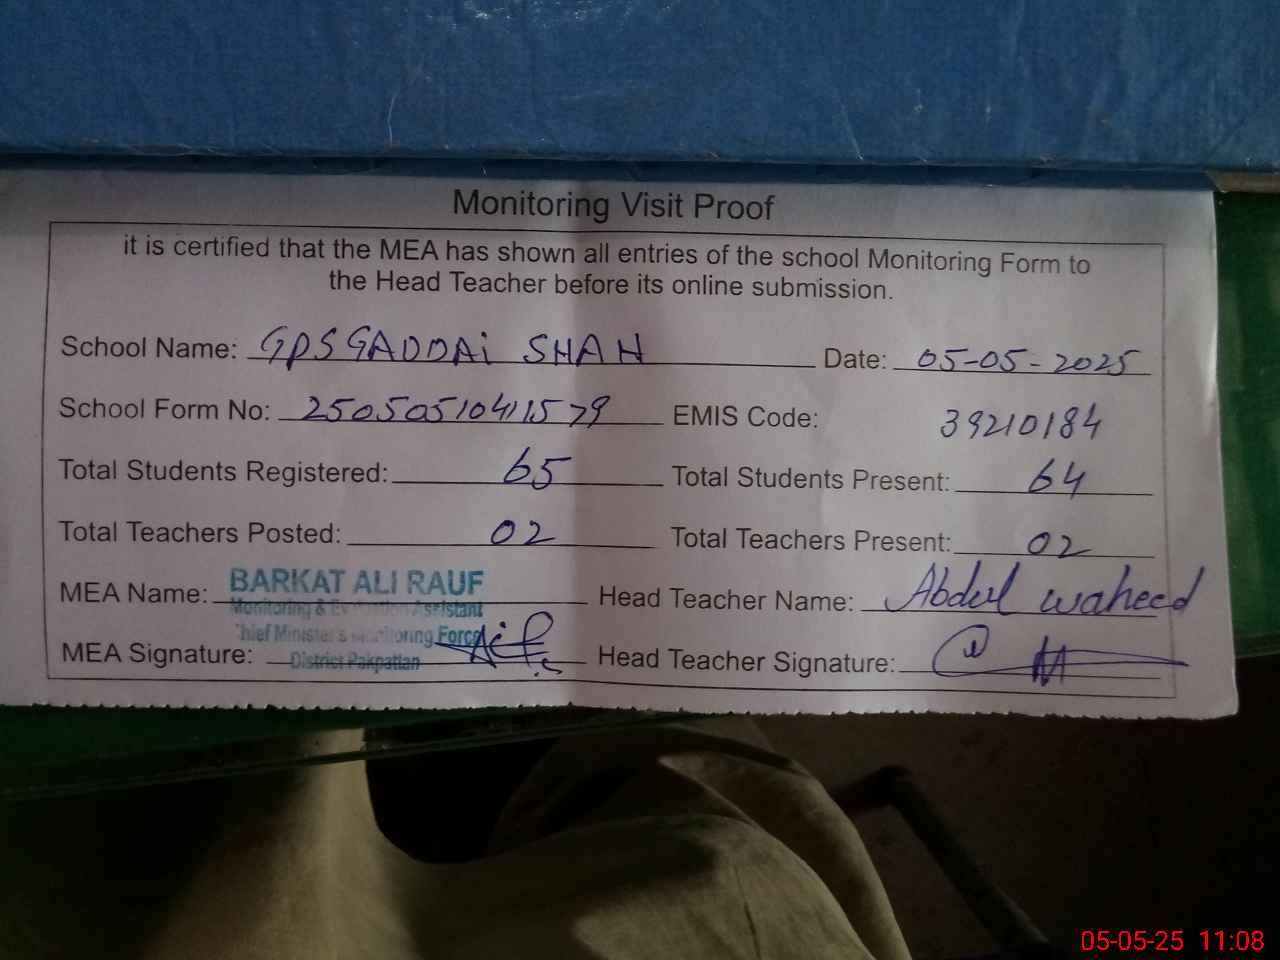 Monitoring Visit Proof
it is certified that the MEA has shown all entries of the school Monitoring Form to
the Head Teacher before its online submission.
School Name: GPS GADDAi SHAH Date: 05-05-2025
School Form No: 25050510411579 EMIS Code: 39210184
Total Students Registered: 65 Total Students Present: 64
Total Teachers Posted: 02 Total Teachers Present: 02
MEA Name: BARKAT ALI RAUF Head Teacher Name: Abdul waheed
Monitoring & Evaluation Assistant
Chief Minister's Monitoring Force
MEA Signature: District Pakpattan Head Teacher Signature:
05-05-25 11:08